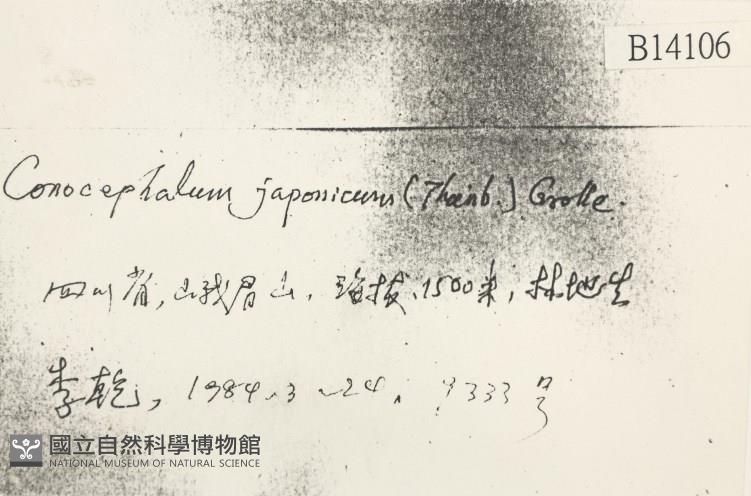 B14106
Conocephalum japonicum (Thunb.) Grolle.
四川省, 峨眉山, 海拔, 1500米, 林地生
李乾, 1984.3.24, 333号
國立自然科學博物館
NATIONAL MUSEUM OF NATURAL SCIENCE